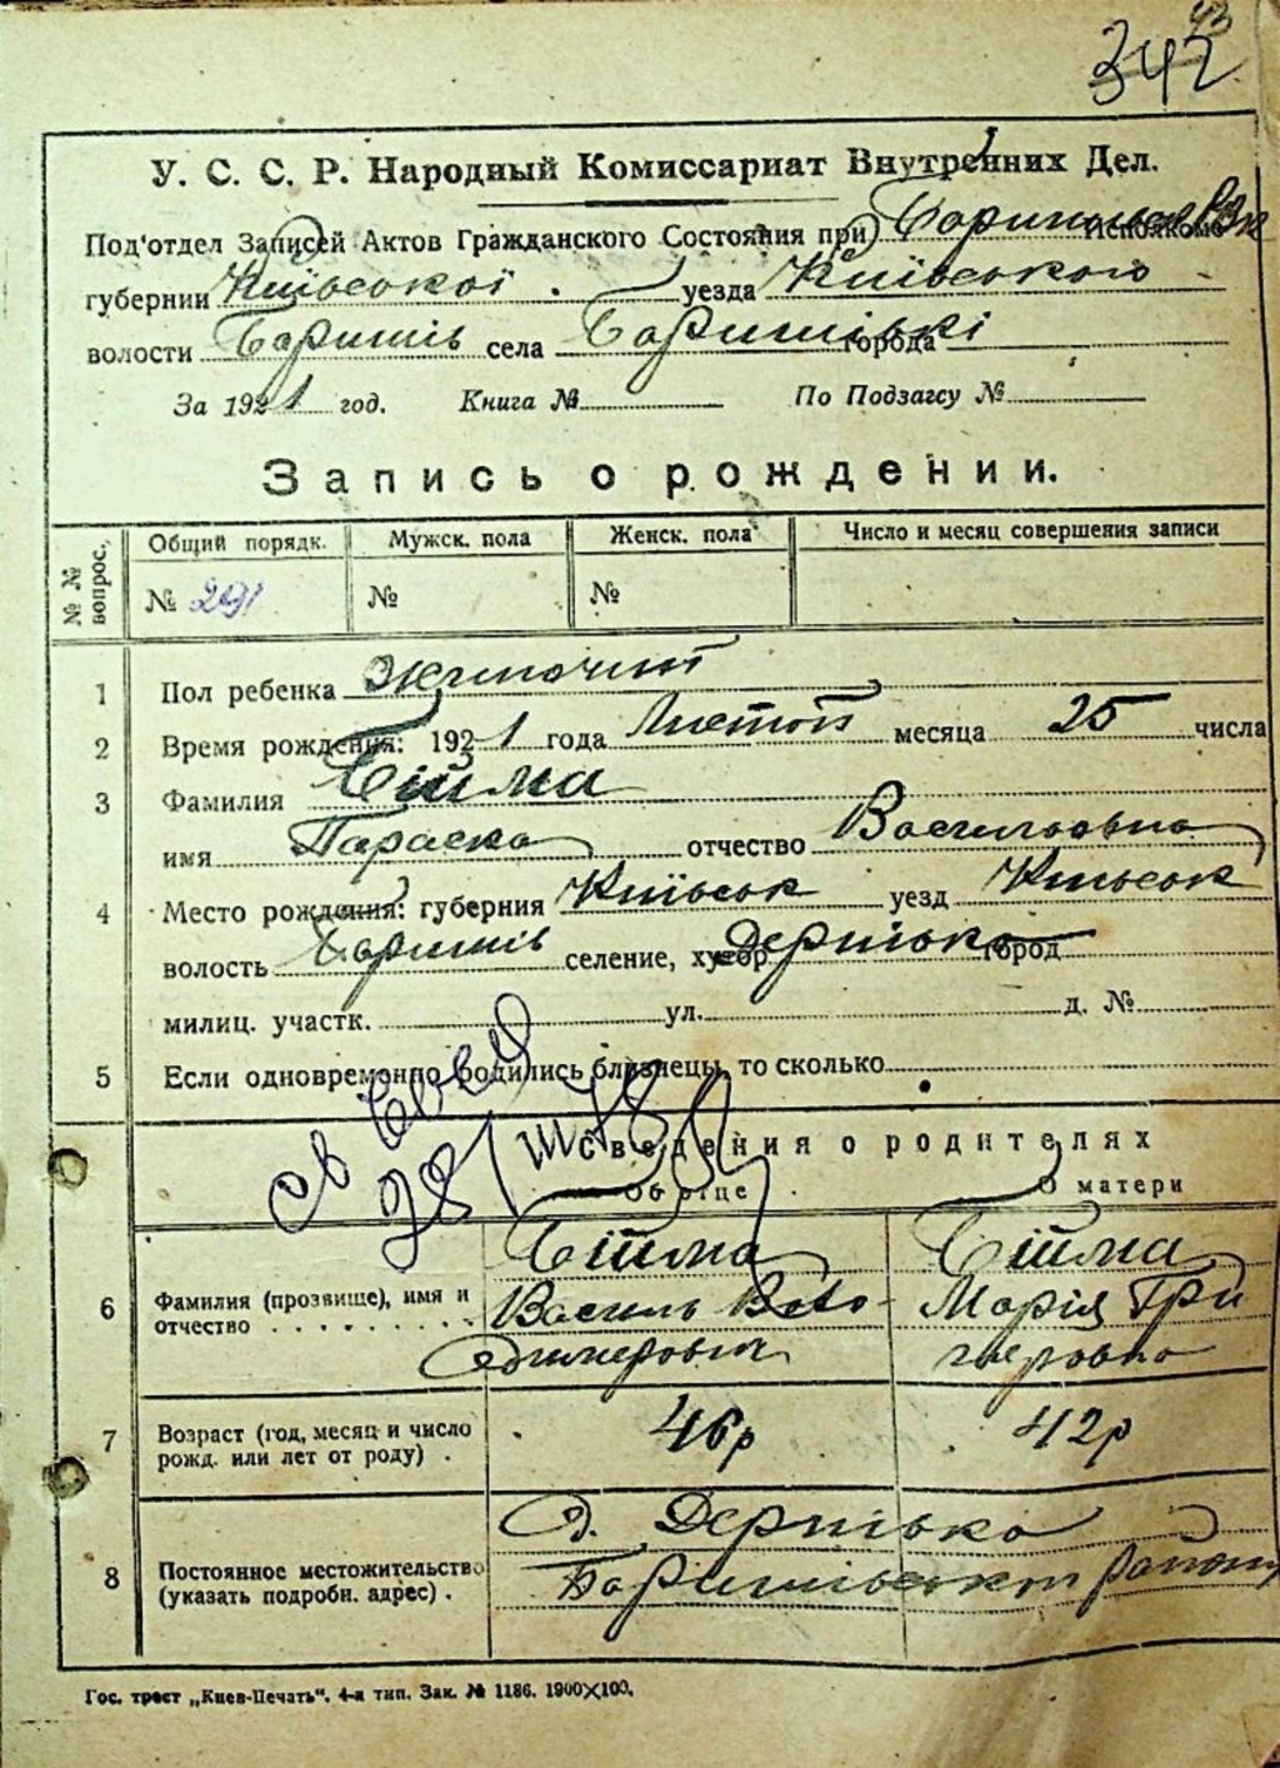 43
342
У. С. С. Р. Народный Комиссариат Внутренних Дел.
Под'отдел Записей Актов Гражданского Состояния при Исполкоме
губернии Київської уезда Київського
волости Баришів села Баришівкі города
За 1921 год. Книга № По Подзагсу №
Запись о рождении.
№ № вопрос. Общий порядк. Мужск. пола Женск. пола Число и месяц совершения записи
№ 291 № №
1 Пол ребенка Жиночий
2 Время рождения: 1921 года Листоп месяца 25 числа
3 Фамилия
имя Параска отчество Васильовна
4 Место рождения: губерния Київськ уезд Київськ
волость Баришів селение, хутор Дернівка город
милиц. участк. ул. д. №
5 Если одновременно родились близнецы, то сколько
Сведения о родителях
Об отце О матери
6 Фамилия (прозвище), имя и отчество
Василь Воло- Марія Гри
димерович горовна
7 Возраст (год, месяц и число рожд. или лет от роду) . 46р 42р
8 Постоянное местожительство (указать подробн. адрес) .
с. Дернівка
Баришівського району
Гос. трест „Киев-Печать“. 4-я тип. Зак. № 1186. 1900×100.